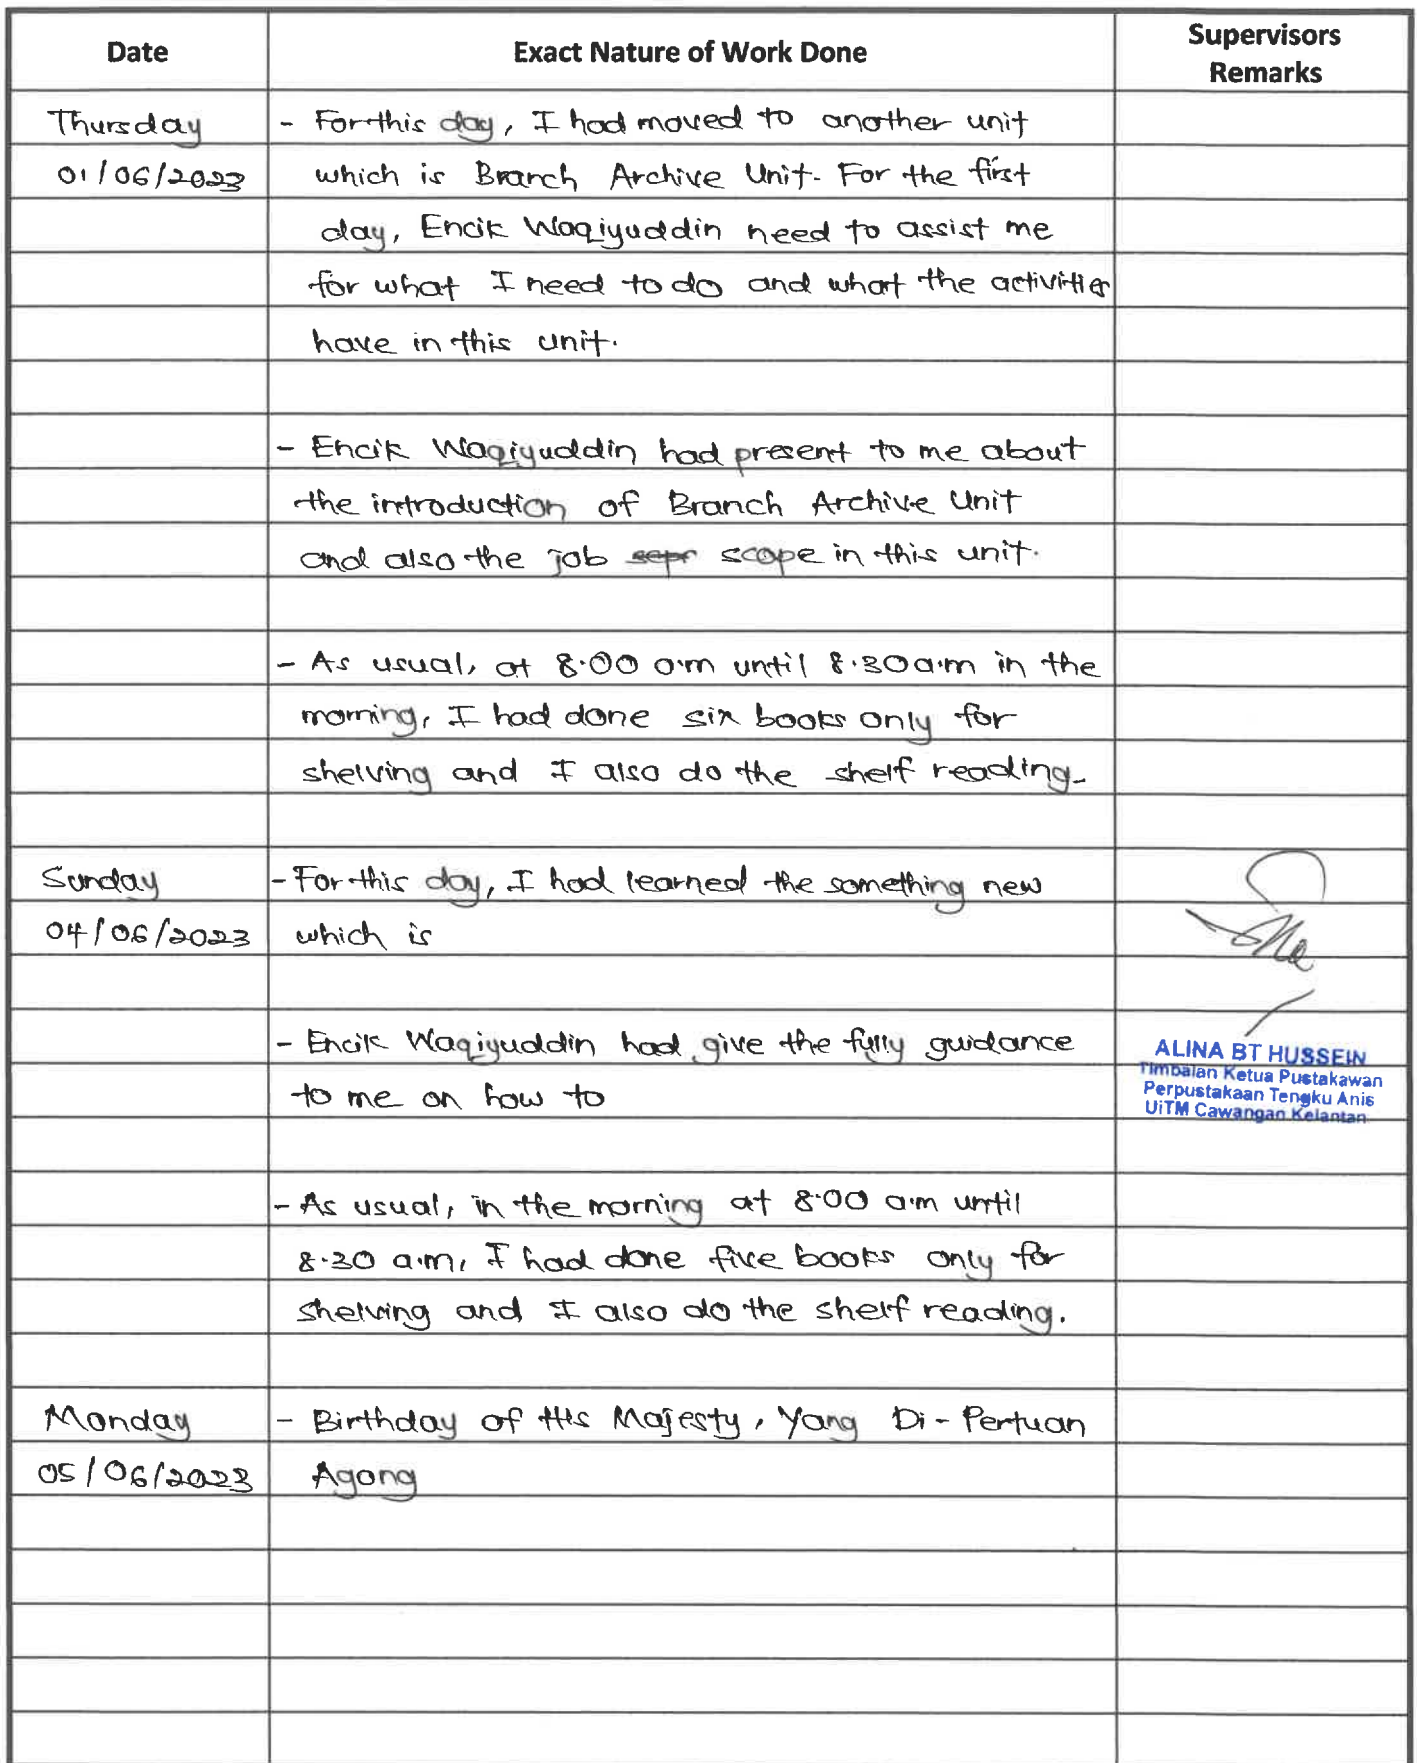 Date Exact Nature of Work Done Supervisors Remarks
Thursday - For this day, I had moved to another unit
01/06/2023 which is Branch Archive Unit. For the first
day, Encik Waqiyuddin need to assist me
for what I need to do and what the activities
have in this unit.
- Encik Waqiyuddin had present to me about
the introduction of Branch Archive Unit
and also the job scope in this unit.
- As usual, at 8.00 a.m until 8.30 a.m in the
morning, I had done six books only for
shelving and I also do the shelf reading.
Sunday - For this day, I had learned the something new
04/06/2023 which is
- Encik Waqiyuddin had give the fully guidance
to me on how to
ALINA BT HUSSEIN
Timbalan Ketua Pustakawan
Perpustakaan Tengku Anis
UiTM Cawangan Kelantan
- As usual, in the morning at 8.00 a.m until
8.30 a.m, I had done five books only for
shelving and I also do the shelf reading.
Monday - Birthday of His Majesty, Yang Di-Pertuan
05/06/2023 Agong